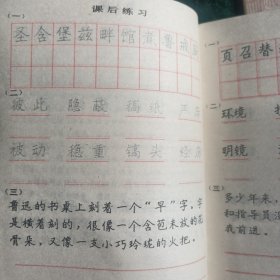 课后练习
(一)
圣 含 堡 兹 畔 馆 鲁 戒
(二)
彼此 隐蔽 稿纸
被动 稳重 镐头
(三)
鲁迅的书桌上刻着一个“早”字。字
是横着刻的,很像一个含苞未放的花
骨朵,又像一支小巧玲珑的火把。
(一)
页 召 替
(二)
环境
明镜
(三)
多少年来,
和指导员
我前进。